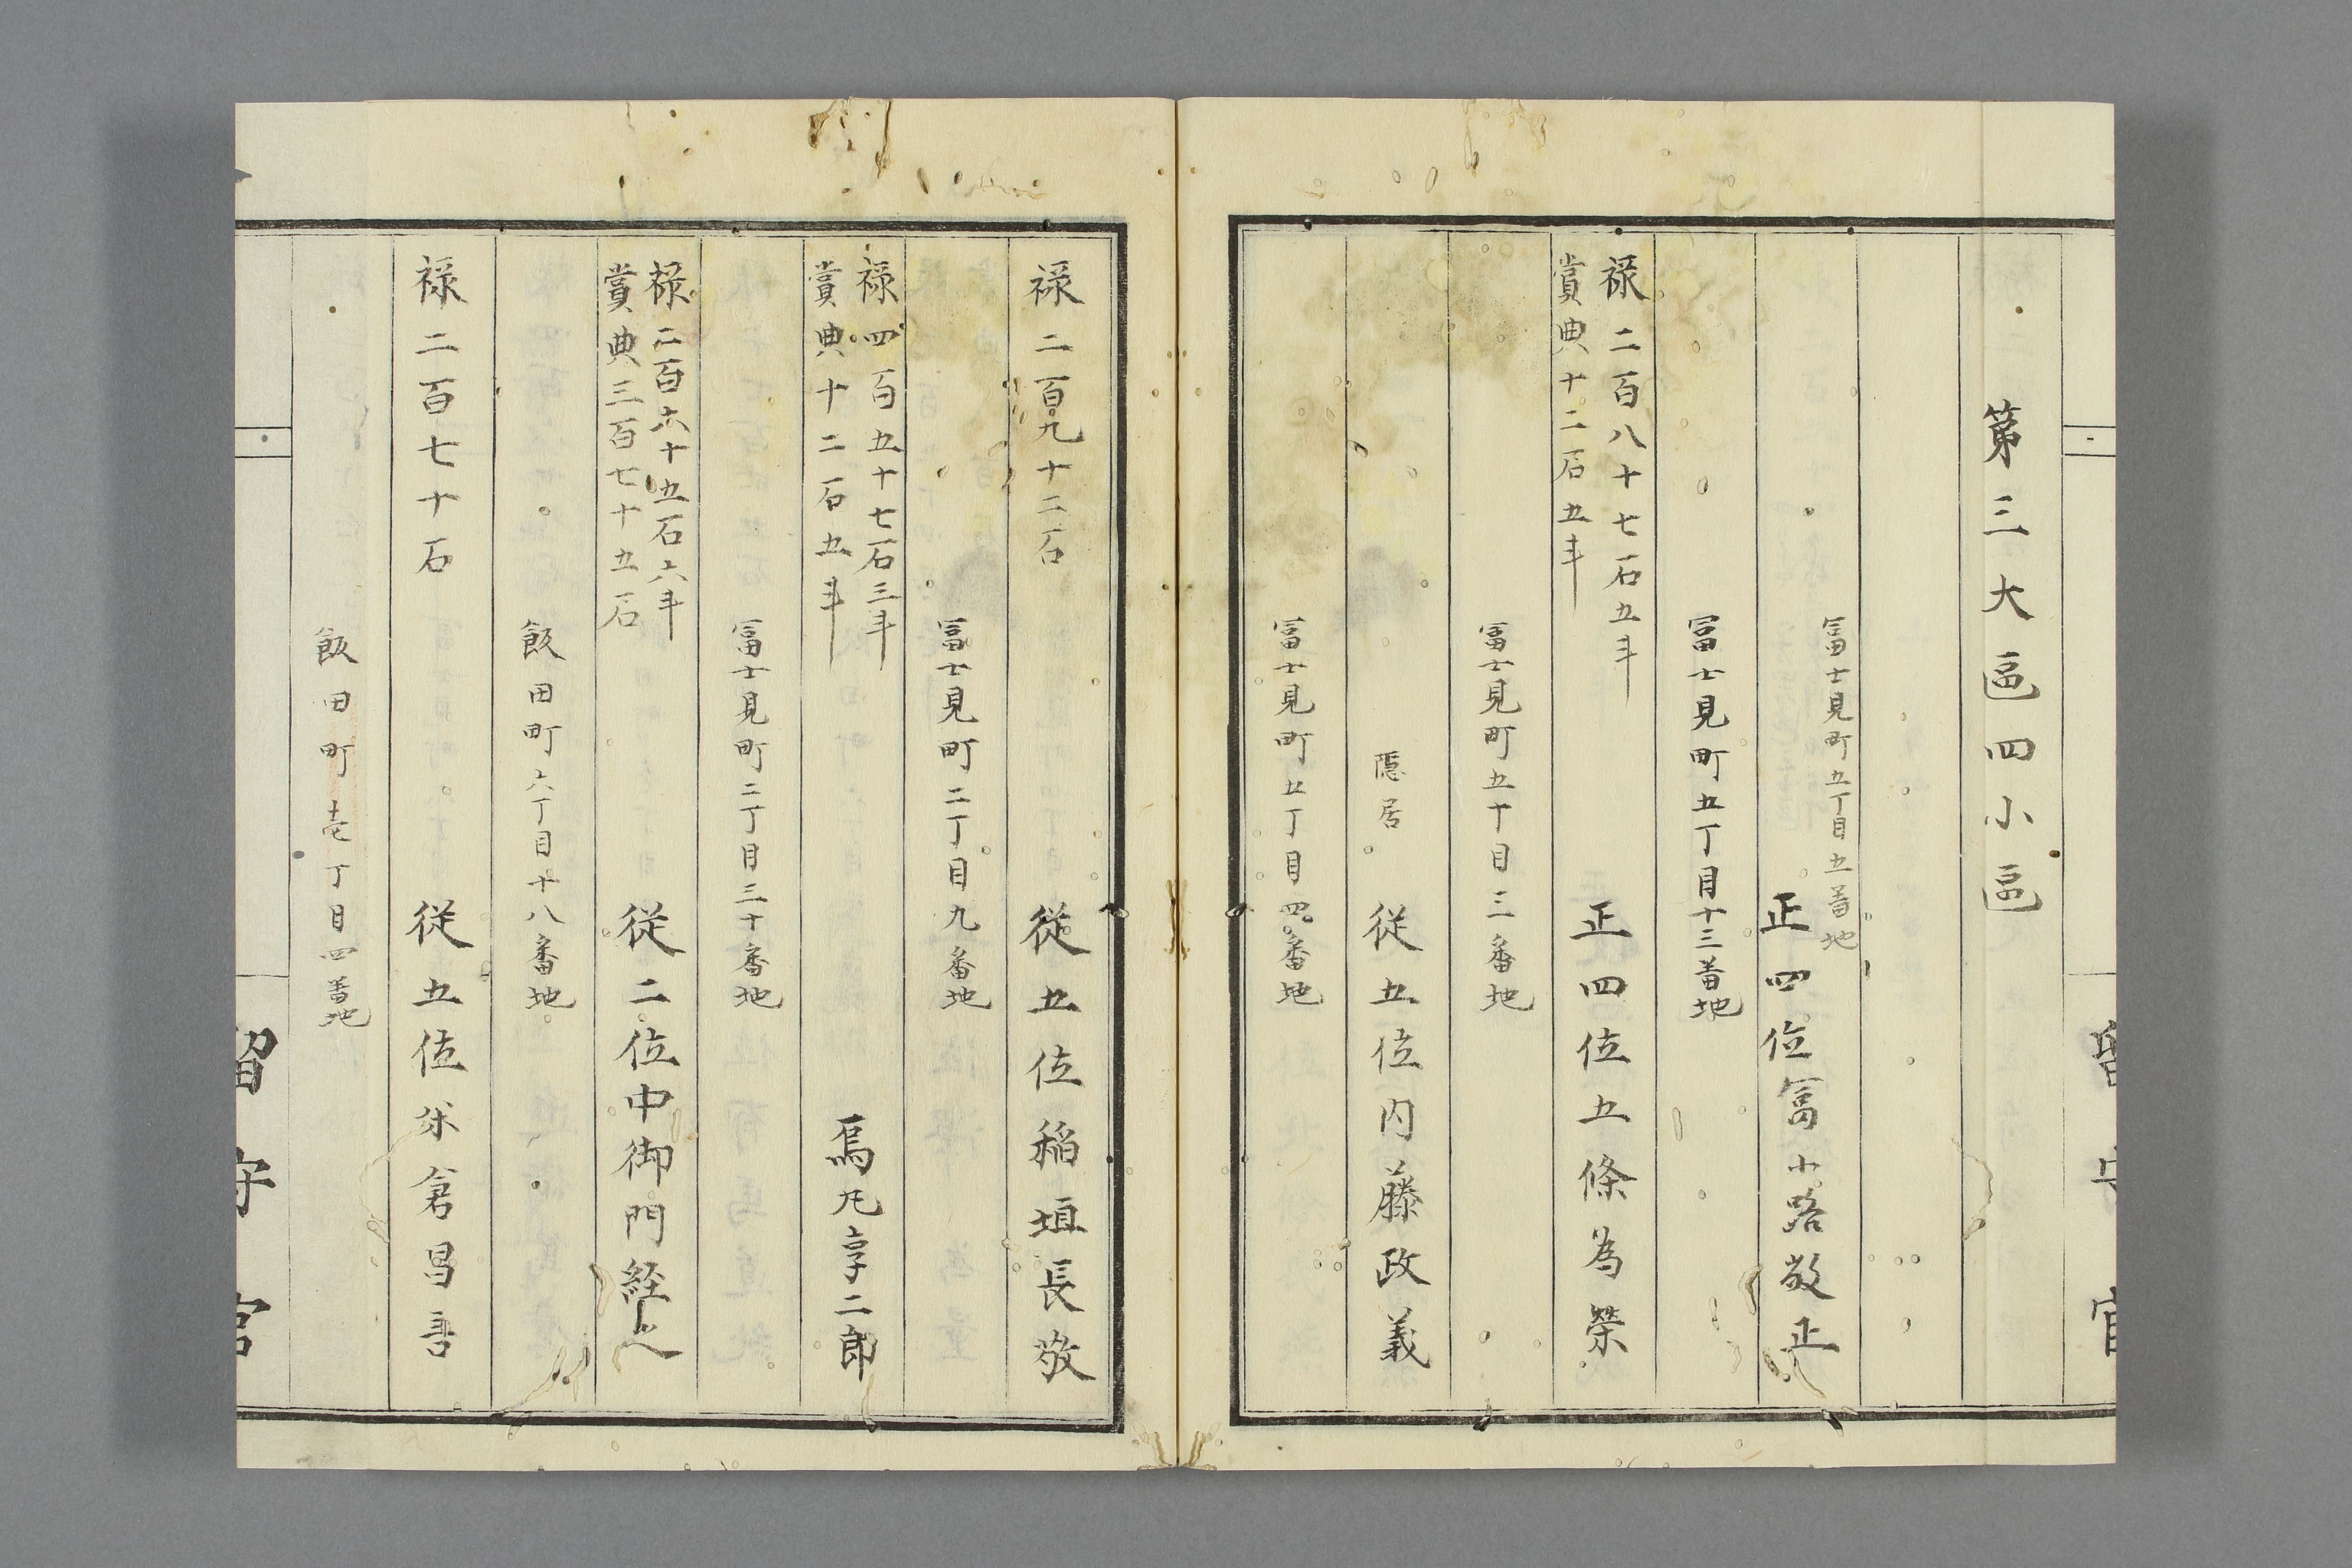 第三大區四小區
富士見町五丁目五番地
正四位富小路敬正
富士見町五丁目十三番地
禄二百八十七石五斗
賞典十二石五斗
正四位五條為榮
富士見町五丁目三番地
隠居
従五位内藤政義
富士見町五丁目四番地
禄二百九十二石
従五位稲垣長敬
富士見町二丁目九番地
禄四百五十七石三斗
賞典十二石五斗
烏丸享二郎
富士見町二丁目三十番地
禄二百六十五石六斗
賞典三百七十五石
従二位中御門経之
飯田町六丁目十八番地
禄二百七十石
従五位米倉昌言
飯田町壱丁目四番地
留守官